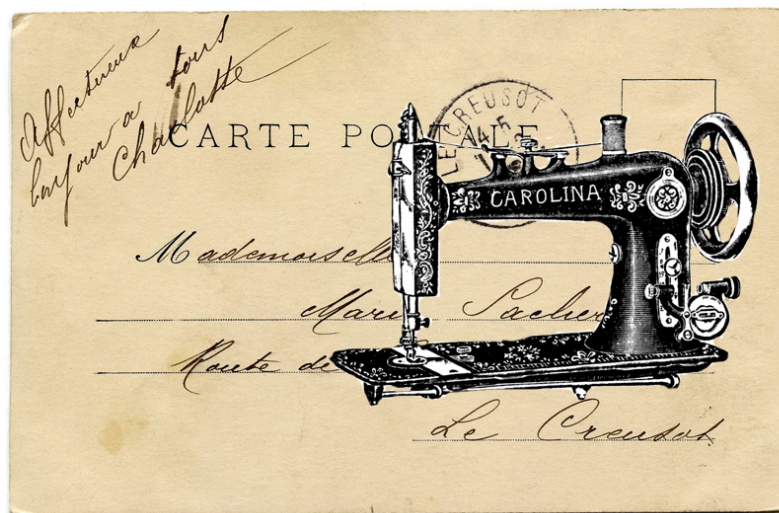 Affectueux
bonjour a tous
Charlotte
CARTE POSTALE
LE CREUSOT
14-5
CAROLINA
Mademoiselle
Marie Sacher
Route de
Le Creusot